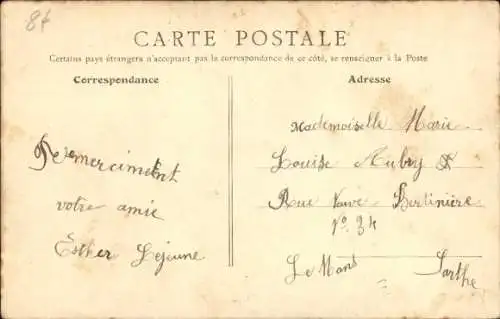 8f
CARTE POSTALE
Certains pays étrangers n'acceptant pas la correspondance de ce côté, se renseigner à la Poste
Correspondance
Remerciment
votre amie
Esther Lejeune
Adresse
Mademoiselle Marie
Louise Aubry
Rue Neuve Bertinière
No. 34
Le Mans Sarthe